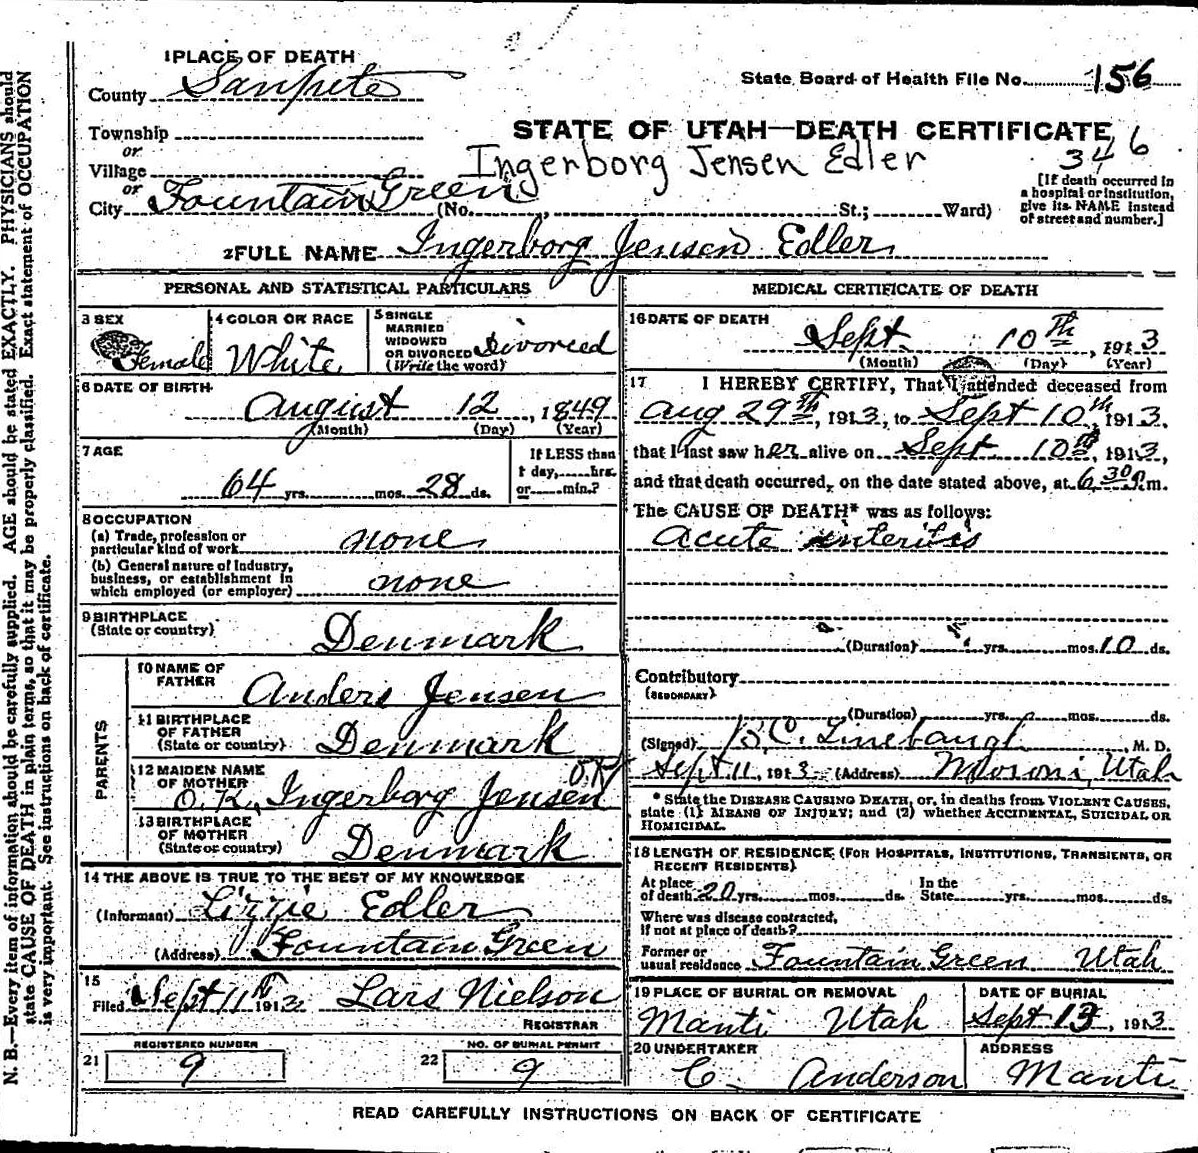 1 PLACE OF DEATH
County Sanpete
State Board of Health File No. 156
Township
or
Village
or
City Fountain Green (No. , St.; Ward)
STATE OF UTAH—DEATH CERTIFICATE
346
Ingerborg Jensen Edler
[If death occurred in
a hospital or institution,
give its NAME instead
of street and number.]
2 FULL NAME Ingerborg Jensen Edler
PERSONAL AND STATISTICAL PARTICULARS
3 SEX
Female
4 COLOR OR RACE
White
5 SINGLE
MARRIED
WIDOWED
OR DIVORCED Divorced
(Write the word)
6 DATE OF BIRTH
August 12, 1849
(Month) (Day) (Year)
7 AGE
64 yrs. mos. 28 ds.
If LESS than
1 day, hrs.
or min.?
8 OCCUPATION
(a) Trade, profession or
particular kind of work none
(b) General nature of Industry,
business, or establishment in
which employed (or employer) none
9 BIRTHPLACE
(State or country) Denmark
PARENTS
10 NAME OF
FATHER Anders Jensen
11 BIRTHPLACE
OF FATHER
(State or country) Denmark
12 MAIDEN NAME
OF MOTHER O.K.
O.K. Ingerborg Jensen
13 BIRTHPLACE
OF MOTHER
(State or country) Denmark
14 THE ABOVE IS TRUE TO THE BEST OF MY KNOWLEDGE
(Informant) Lizzie Edler
(Address) Fountain Green
15
Filed Sept 11th 1913 Lars Nielson
REGISTRAR
REGISTERED NUMBER
21 9
NO. OF BURIAL PERMIT
22 9
MEDICAL CERTIFICATE OF DEATH
16 DATE OF DEATH
Sept. 10th, 1913
(Month) (Day) (Year)
17 I HEREBY CERTIFY, That I attended deceased from
Aug 29th, 1913, to Sept 10th, 1913,
that I last saw her alive on Sept 10th, 1913,
and that death occurred, on the date stated above, at 6.30 P.m.
The CAUSE OF DEATH* was as follows:
Acute interitis
(Duration) yrs. mos. 10 ds.
Contributory
(SECONDARY)
(Duration) yrs. mos. ds.
(Signed) B.C. Linebaugh, M. D.
Sept 11, 1913 (Address) Moroni, Utah
* State the DISEASE CAUSING DEATH, or, in deaths from VIOLENT CAUSES,
state (1) MEANS OF INJURY; and (2) whether ACCIDENTAL, SUICIDAL OR
HOMICIDAL.
18 LENGTH OF RESIDENCE (FOR HOSPITALS, INSTITUTIONS, TRANSIENTS, OR
RECENT RESIDENTS)
At place
of death 20 yrs. mos. ds.
In the
State yrs. mos. ds.
Where was disease contracted,
if not at place of death?
Former or
usual residence Fountain Green Utah
19 PLACE OF BURIAL OR REMOVAL
Manti Utah
DATE OF BURIAL
Sept 13, 1913
20 UNDERTAKER
C Anderson
ADDRESS
Manti
READ CAREFULLY INSTRUCTIONS ON BACK OF CERTIFICATE
N. B.—Every item of information should be carefully supplied. AGE should be stated EXACTLY. PHYSICIANS should
state CAUSE OF DEATH in plain terms, so that it may be properly classified. Exact statement of OCCUPATION
is very important. See instructions on back of certificate.